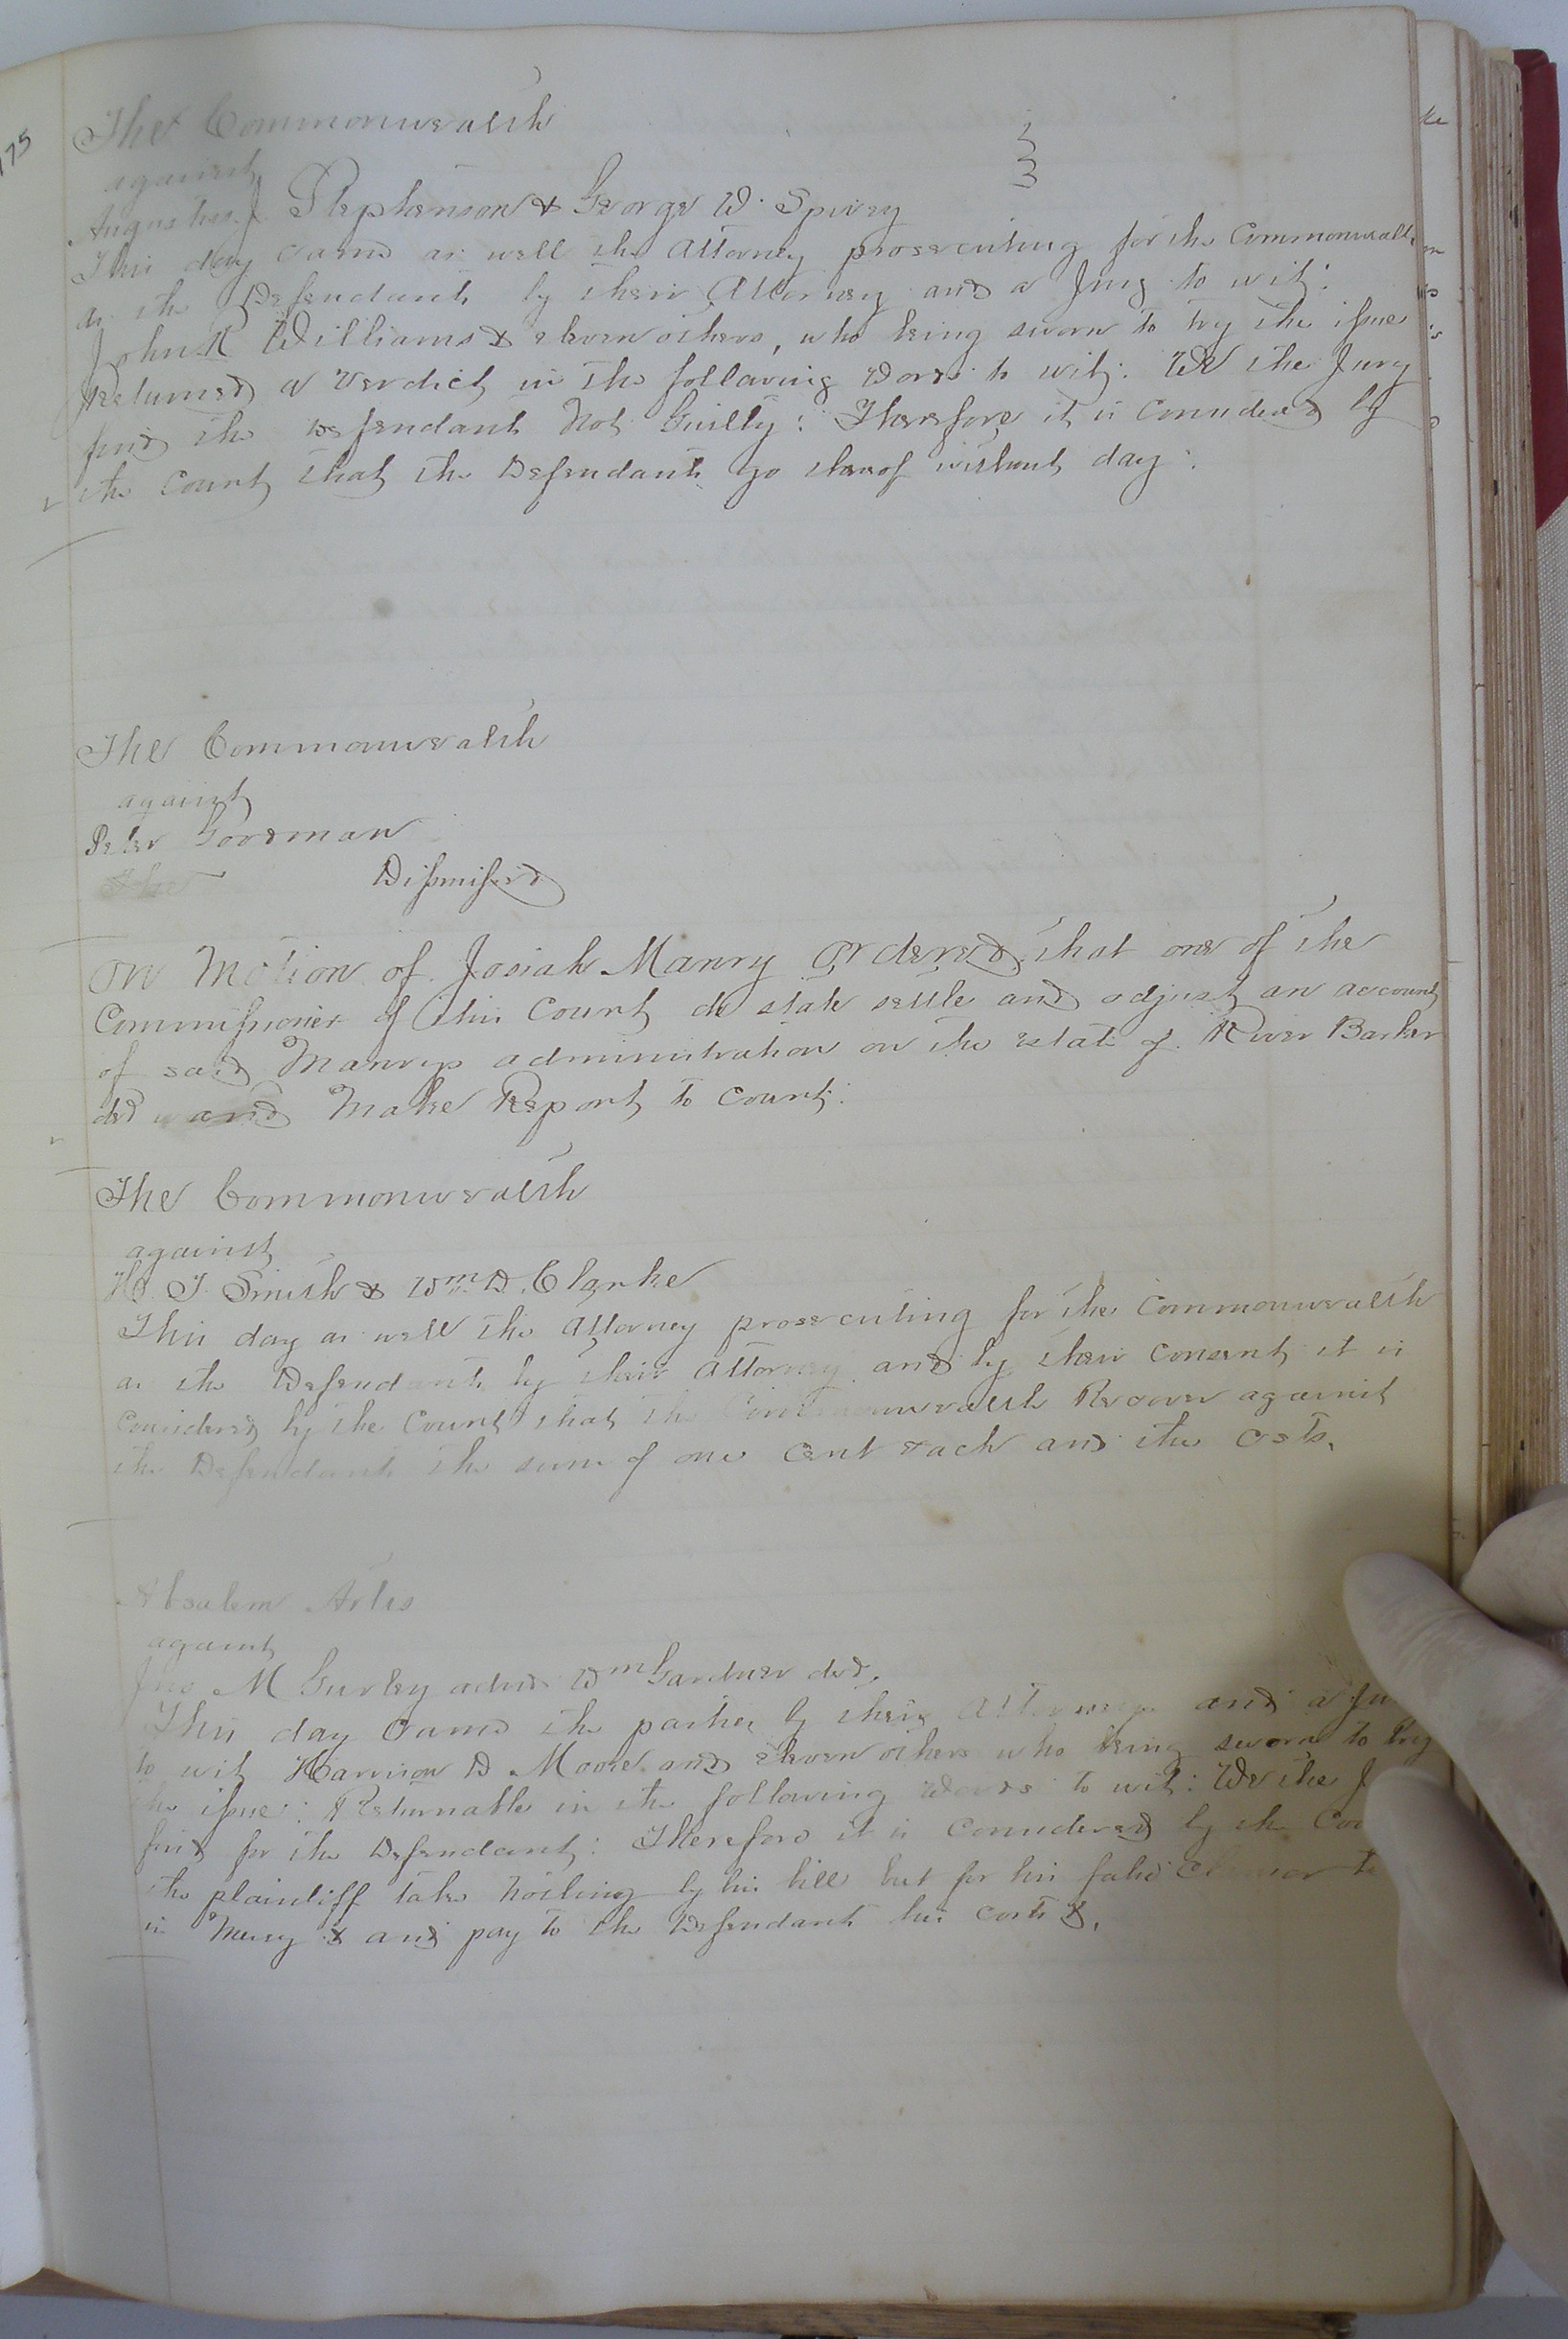 175
The Commonwealth
against
Augustus J. Stephenson & George W. Spivey
This day came as well the Attorney prosecuting for the Commonwealth
as the Defendants by their Attorney and a Jury to wit:
John R Williams & eleven others, who being sworn to try the issue
Returned a Verdict in the following Words to wit: We the Jury
find the Defendants Not Guilty: Therefore it is Considered by
the Court that the Defendants go thereof without day:
The Commonwealth
against
Peter Goodman
Dismissed
On Motion of Josiah Manry Ordered that one of the
Commissioners of this Court do state settle and adjust an account
of said Manrys administration on the estate of River Barker
decd and Make Report to Court:
The Commonwealth
against
H. J. Smith & Wm D. Clarke
This day as well the Attorney prosecuting for the Commonwealth
as the Defendants by their Attorney and by their Consent it is
Considered by the Court that the Commonwealth Recover against
the Defendants the sum of one Cent each and the Costs.
Absalem Artis
against
Jno M Gurley admr Wm Gardner decd.
This day Came the parties by their Attorneys and a Ju
to wit Harrison D Moore and eleven others who being sworn to try
the issue: Returnable in the following Words to wit: We the J
find for the Defendant: Therefore it is Considered by the Cou
the plaintiff take Nothing by his bill but for his false Clamor be
in Mercy & and pay to the Defendant his Costs &.